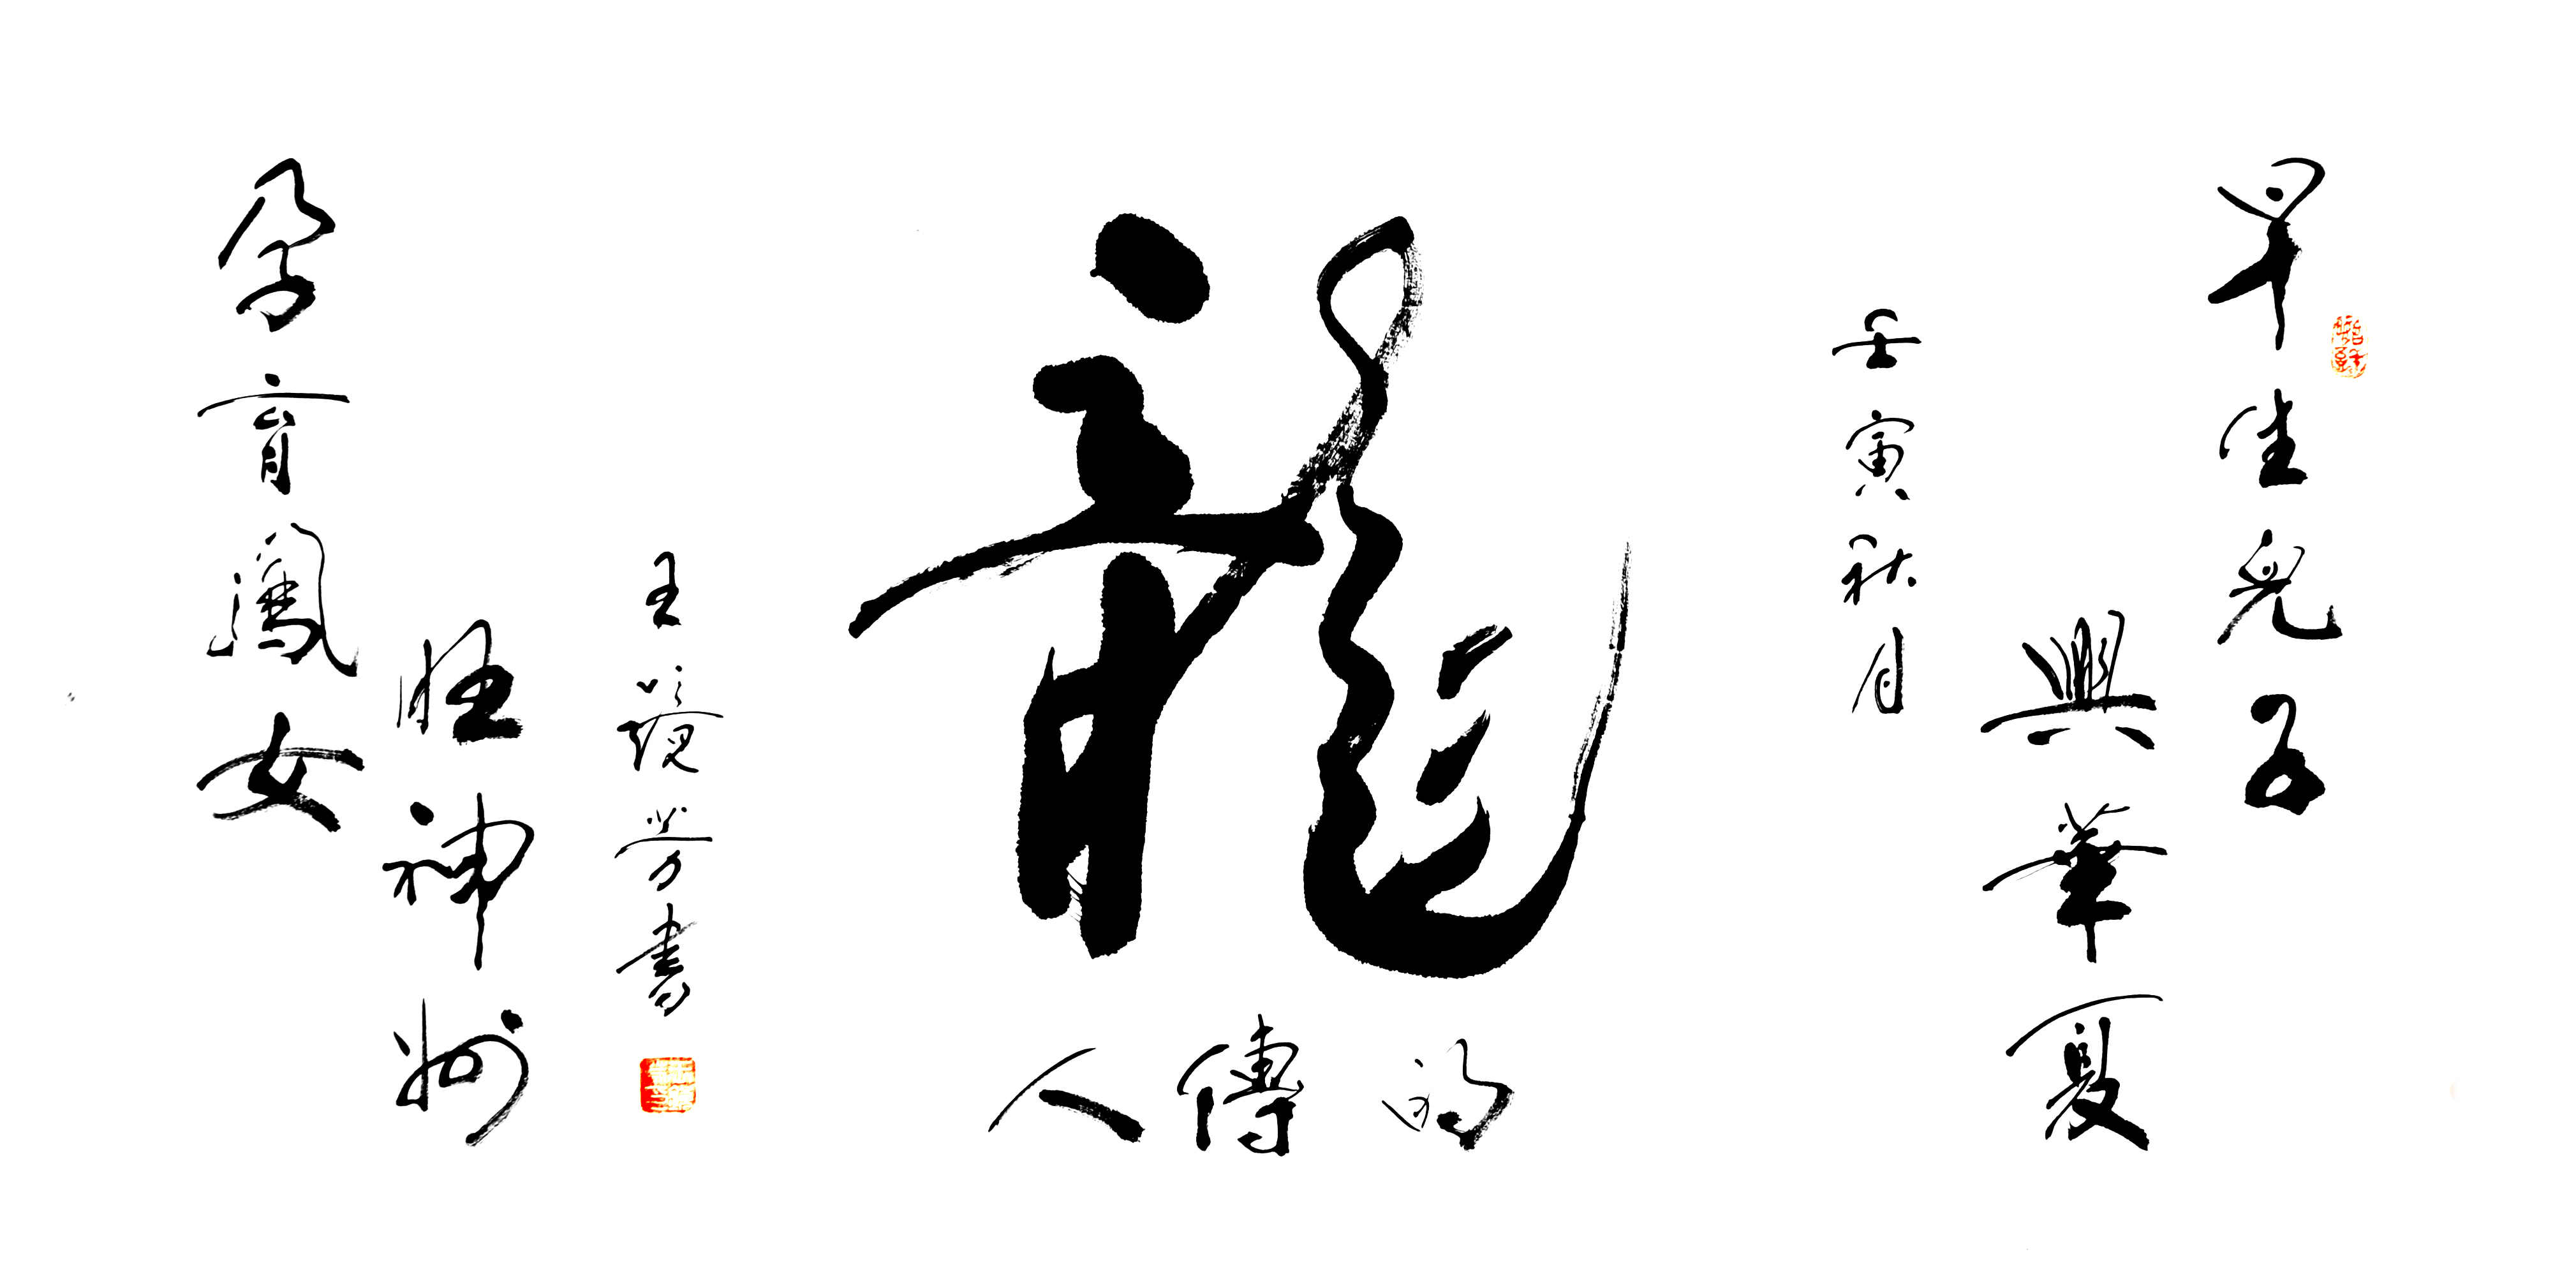 早生兒子
興華夏
壬寅秋月
龍
的傳人
王鏡芳書
孕育鳳女
旺神州